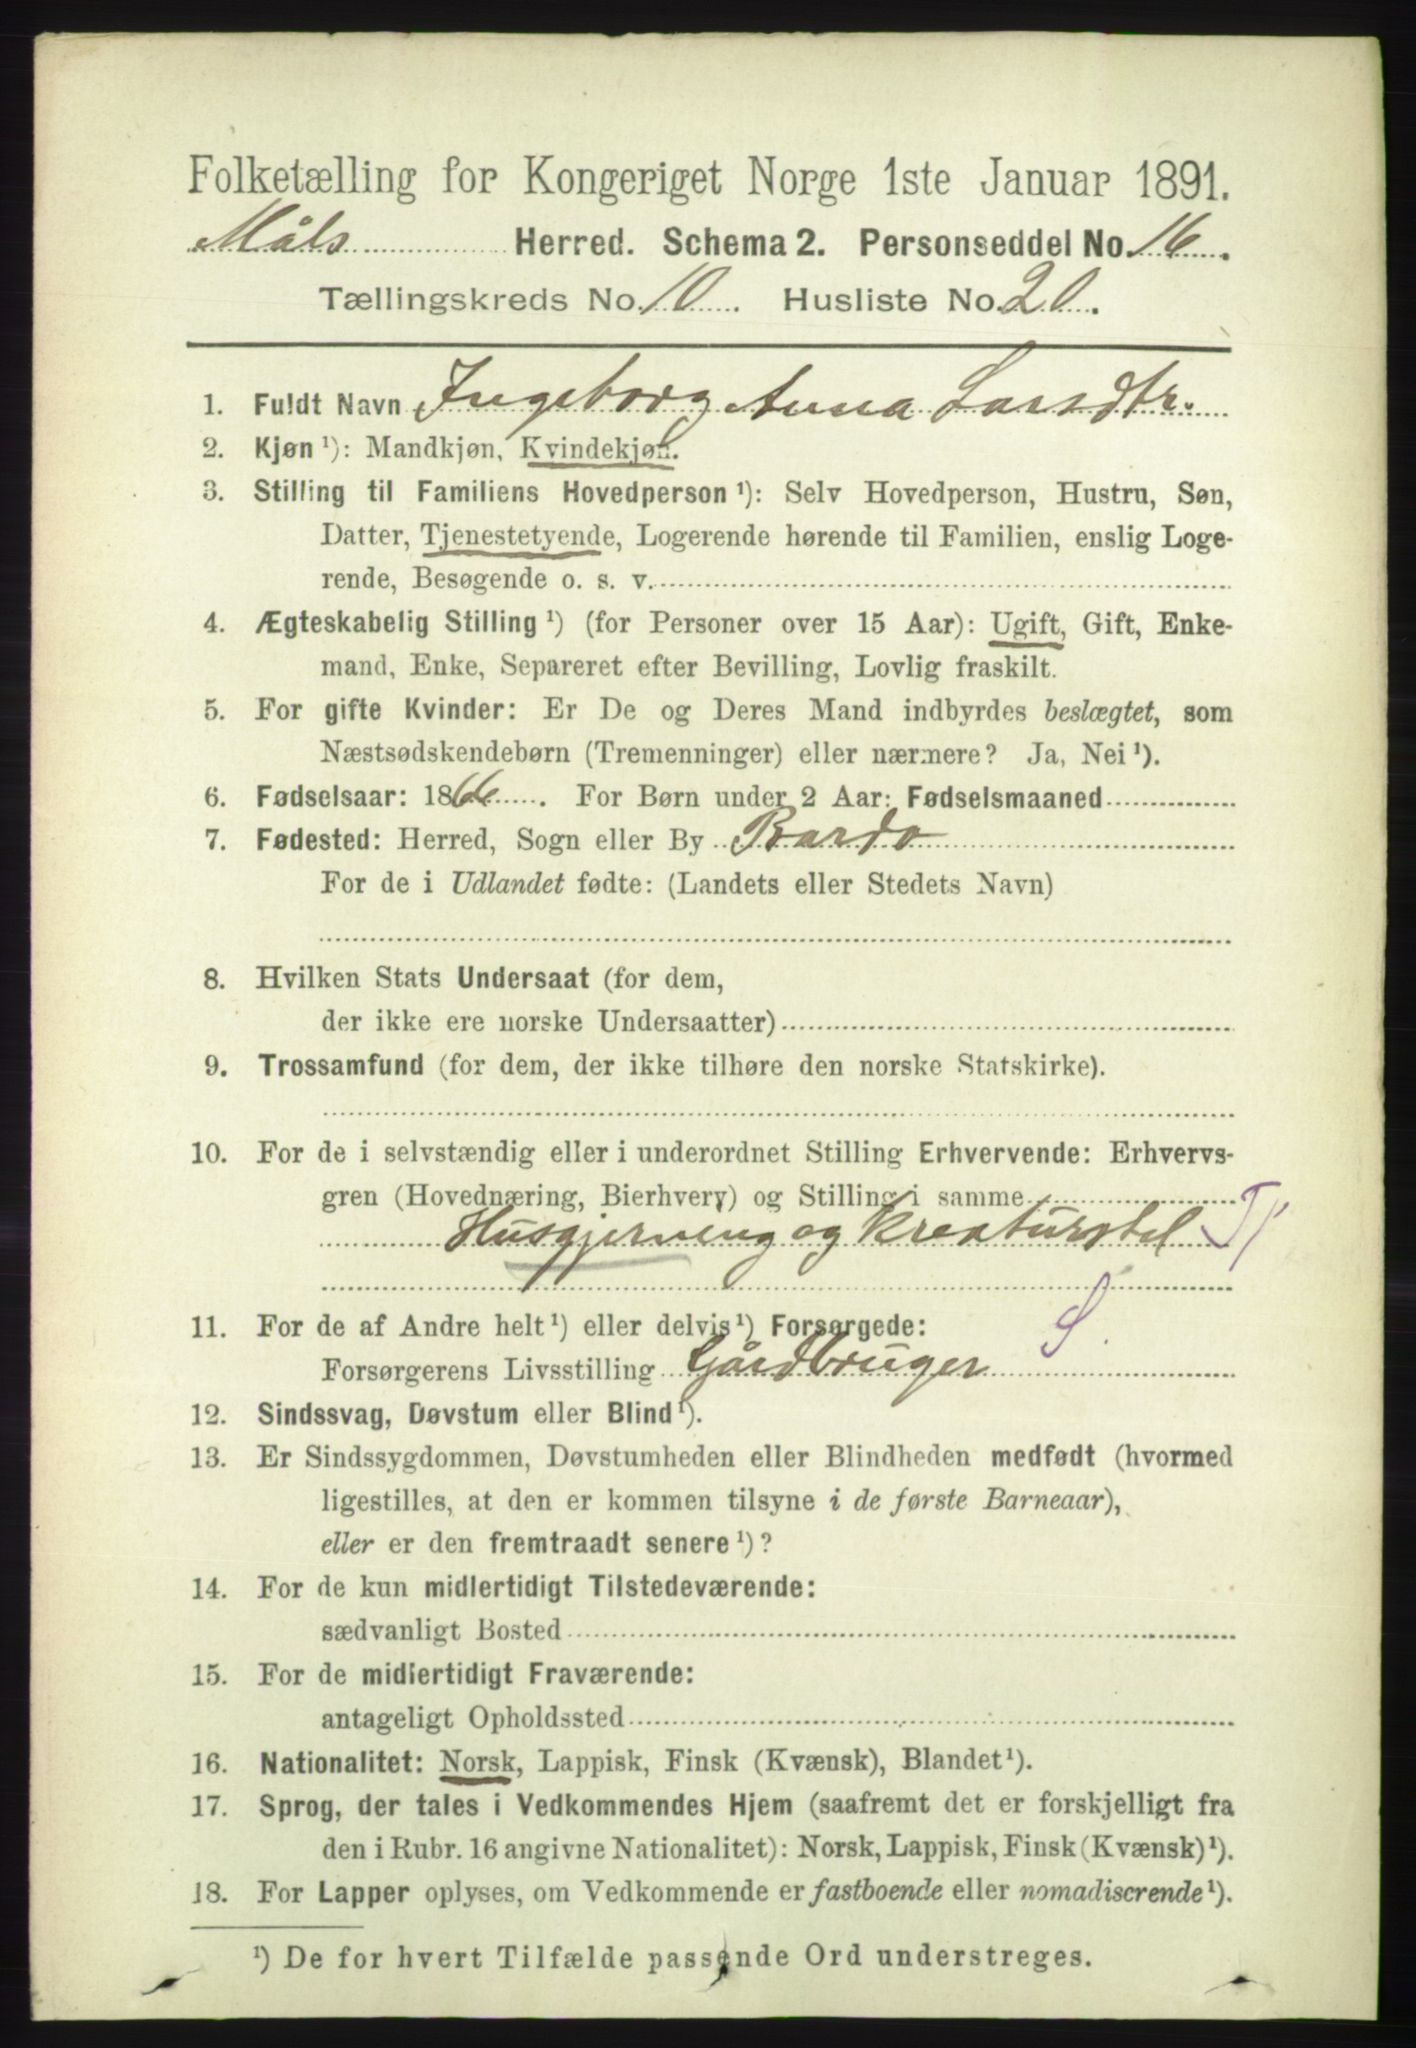 Folketælling for Kongeriget Norge 1ste Januar 1891.
Måls Herred. Schema 2. Personseddel No. 16.
Tællingskreds No. 10. Husliste No. 20.
1. Fuldt Navn Ingeborg Anna Larsdtr.
2. Kjøn ¹): Mandkjøn, Kvindekjøn.
3. Stilling til Familiens Hovedperson ¹): Selv Hovedperson, Hustru, Søn,
Datter, Tjenestetyende, Logerende hørende til Familien, enslig Loge-
rende, Besøgende o. s. v.
4. Ægteskabelig Stilling ¹) (for Personer over 15 Aar): Ugift, Gift, Enke-
mand, Enke, Separeret efter Bevilling, Lovlig fraskilt.
5. For gifte Kvinder: Er De og Deres Mand indbyrdes beslægtet, som
Næstsødskendebørn (Tremenninger) eller nærmere? Ja, Nei ¹).
6. Fødselsaar: 1866. For Børn under 2 Aar: Fødselsmaaned
7. Fødested: Herred, Sogn eller By Bardo
For de i Udlandet fødte: (Landets eller Stedets Navn)
8. Hvilken Stats Undersaat (for dem,
der ikke ere norske Undersaatter)
9. Trossamfund (for dem, der ikke tilhøre den norske Statskirke).
10. For de i selvstændig eller i underordnet Stilling Erhvervende: Erhvervs-
gren (Hovednæring, Bierhverv) og Stilling i samme
Husgjerning og Kreaturstel Tj
11. For de af Andre helt ¹) eller delvis ¹) Forsørgede: S.
Forsørgerens Livsstilling Gårdbruger
12. Sindssvag, Døvstum eller Blind ¹).
13. Er Sindssygdommen, Døvstumheden eller Blindheden medfødt (hvormed
ligestilles, at den er kommen tilsyne i de første Barneaar),
eller er den fremtraadt senere ¹)?
14. For de kun midlertidigt Tilstedeværende:
sædvanligt Bosted
15. For de midlertidigt Fraværende:
antageligt Opholdssted
16. Nationalitet: Norsk, Lappisk, Finsk (Kvænsk), Blandet ¹).
17. Sprog, der tales i Vedkommendes Hjem (saafremt det er forskjelligt fra
den i Rubr. 16 angivne Nationalitet): Norsk, Lappisk, Finsk (Kvænsk) ¹).
18. For Lapper oplyses, om Vedkommende er fastboende eller nomadiserende ¹).
¹) De for hvert Tilfælde passende Ord understreges.